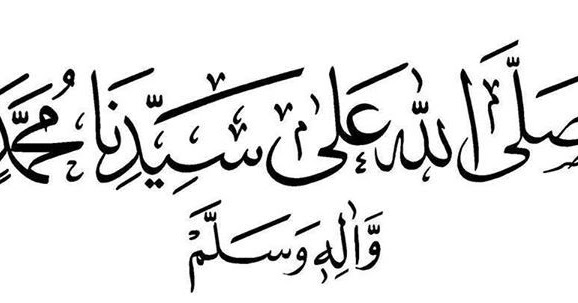 صَلَّى اللهُ عَلَى سَيِّدِنَا مُحَمَّدٍ
وَّاٰلِهٖ وَسَلَّمْ